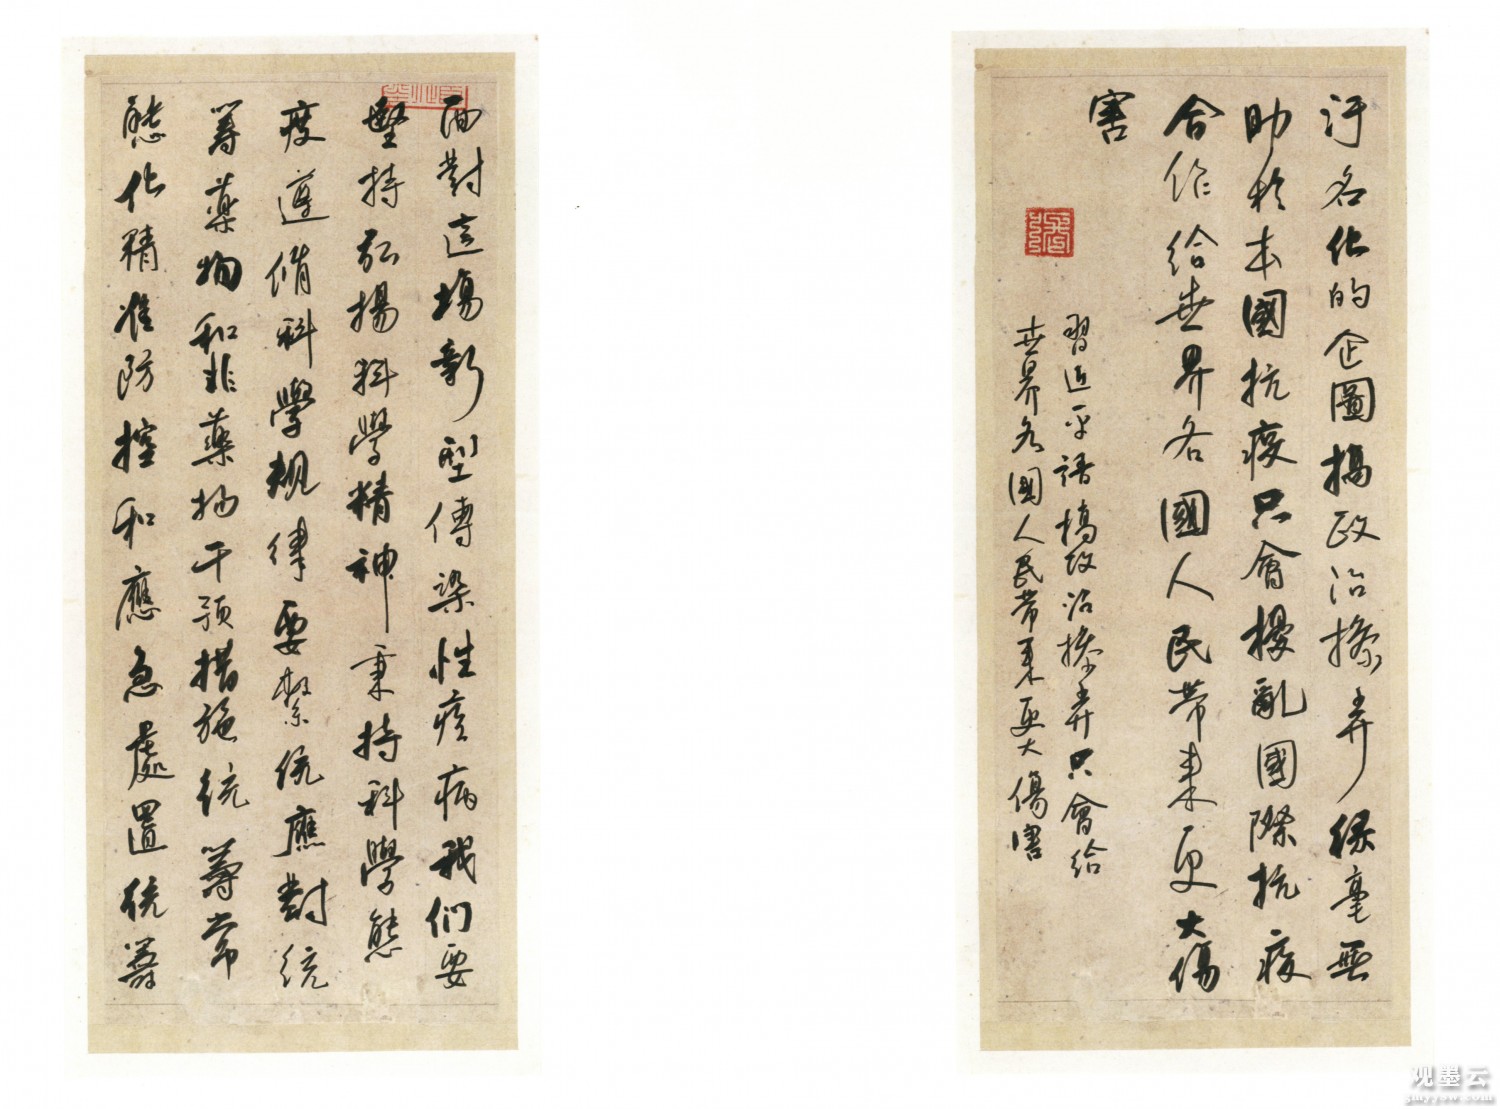 面對這場新型傳染性疾病我們要
堅持弘揚科學精神秉持科學態
度遵循科學規律要繫統應對統
籌藥物和非藥物干預措施統籌常
態化精准防控和應急處置統籌
汙名化的企圖搞政治操弄絲毫無
助於本國抗疫只會擾亂國際抗疫
合作給世界各國人民帶來更大傷
害
習近平語搞政治操弄只會給
世界各國人民帶來更大傷害
观墨云